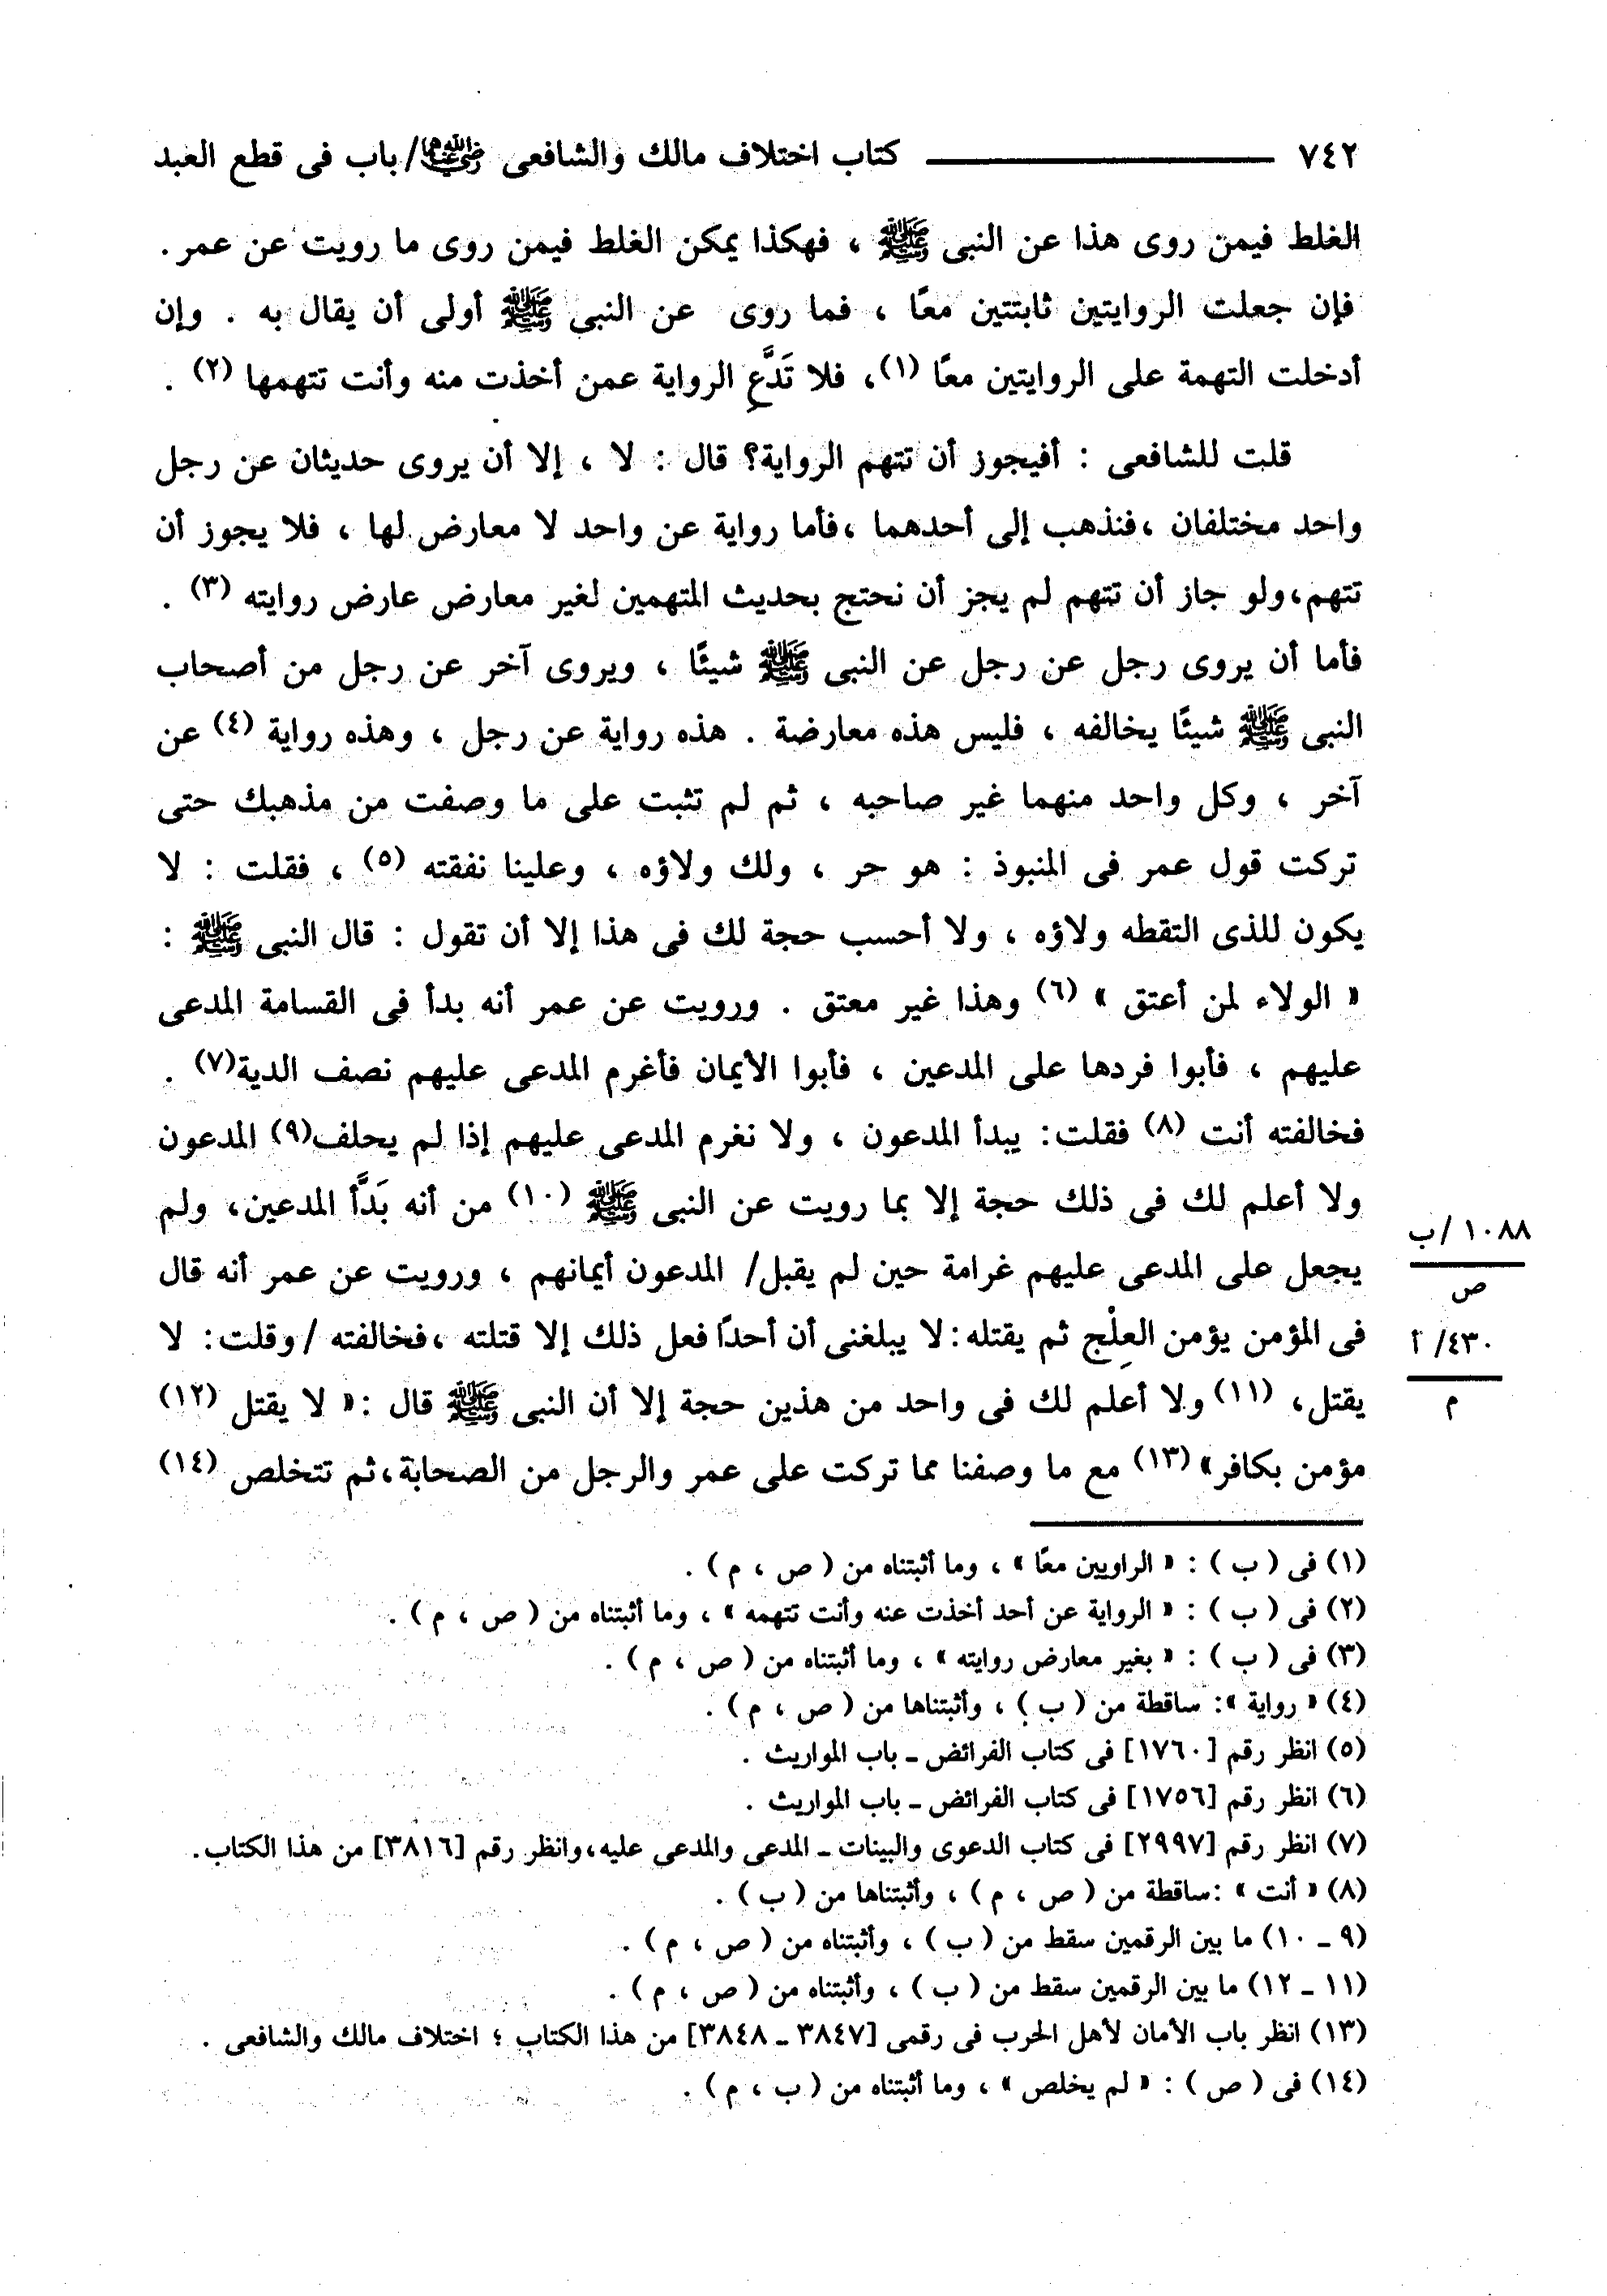 ٧٤٢ ــــــــــ كتاب اختلاف مالك والشافعى رضي الله عنهما / باب فى قطع العبد
الغلط فيمن روى هذا عن النبى ﷺ ، فهكذا يمكن الغلط فيمن روى ما رويت عن عمر .
فإن جعلت الروايتين ثابتتين معًا ، فما روى عن النبى ﷺ أولى أن يقال به . وإن
أدخلت التهمة على الروايتين معًا (١)، فلا تَدَّعِ الرواية عمن أخذت منه وأنت تتهمها (٢) .
قلت للشافعى : أفيجوز أن تتهم الرواية؟ قال : لا ، إلا أن يروى حديثان عن رجل
واحد مختلفان ،فنذهب إلى أحدهما ،فأما رواية عن واحد لا معارض لها ، فلا يجوز أن
تتهم،ولو جاز أن تتهم لم يجز أن نحتج بحديث المتهمين لغير معارض عارض روايته (٣) .
فأما أن يروى رجل عن رجل عن النبى ﷺ شيئًا ، ويروى آخر عن رجل من أصحاب
النبى ﷺ شيئًا يخالفه ، فليس هذه معارضة . هذه رواية عن رجل ، وهذه رواية (٤) عن
آخر ، وكل واحد منهما غير صاحبه ، ثم لم تثبت على ما وصفت من مذهبك حتى
تركت قول عمر فى المنبوذ : هو حر ، ولك ولاؤه ، وعلينا نفقته (٥) ، فقلت : لا
يكون للذى التقطه ولاؤه ، ولا أحسب حجة لك فى هذا إلا أن تقول : قال النبى ﷺ :
« الولاء لمن أعتق » (٦) وهذا غير معتق . ورويت عن عمر أنه بدأ فى القسامة المدعى
عليهم ، فأبوا فردها على المدعين ، فأبوا الأيمان فأغرم المدعى عليهم نصف الدية(٧) .
فخالفته أنت (٨) فقلت: يبدأ المدعون ، ولا نغرم المدعى عليهم إذا لم يحلف(٩) المدعون
ولا أعلم لك فى ذلك حجة إلا بما رويت عن النبى ﷺ (١٠) من أنه بَدَّأ المدعين، ولم
١٠٨٨ /ب
يجعل على المدعى عليهم غرامة حين لم يقبل/ المدعون أيمانهم ، ورويت عن عمر أنه قال
ص
فى المؤمن يؤمن العِلْج ثم يقتله:لا يبلغنى أن أحدًا فعل ذلك إلا قتلته ،فخالفته /وقلت: لا
٤٣٠/ أ
يقتل، (١١) ولا أعلم لك فى واحد من هذين حجة إلا أن النبى ﷺ قال :« لا يقتل (١٢)
م
مؤمن بكافر» (١٣) مع ما وصفنا مما تركت على عمر والرجل من الصحابة،ثم تتخلص (١٤)
(١) فى ( ب ) : « الراويين معًا » ، وما أثبتناه من ( ص ، م ) .
(٢) فى ( ب ) : « الرواية عن أحد أخذت عنه وأنت تتهمه » ، وما أثبتناه من ( ص ، م ) .
(٣) فى ( ب ) : « بغير معارض روايته » ، وما أثبتناه من ( ص ، م ) .
(٤) « رواية »: ساقطة من ( ب ) ، وأثبتناها من ( ص ، م ) .
(٥) انظر رقم [١٧٦٠] فى كتاب الفرائض ـ باب المواريث .
(٦) انظر رقم [١٧٥٦] فى كتاب الفرائض ـ باب المواريث .
(٧) انظر رقم [٢٩٩٧] فى كتاب الدعوى والبينات ـ المدعى والمدعى عليه،وانظر رقم [٣٨١٦] من هذا الكتاب.
(٨) « أنت » :ساقطة من ( ص ، م ) ، وأثبتناها من ( ب ) .
(٩ ـ ١٠) ما بين الرقمين سقط من ( ب ) ، وأثبتناه من ( ص ، م ) .
(١١ ـ ١٢) ما بين الرقمين سقط من ( ب ) ، وأثبتناه من ( ص ، م ) .
(١٣) انظر باب الأمان لأهل الحرب فى رقمى [٣٨٤٧ ـ ٣٨٤٨] من هذا الكتاب ؛ اختلاف مالك والشافعى .
(١٤) فى ( ص ) : « لم يخلص » ، وما أثبتناه من ( ب ، م ) .